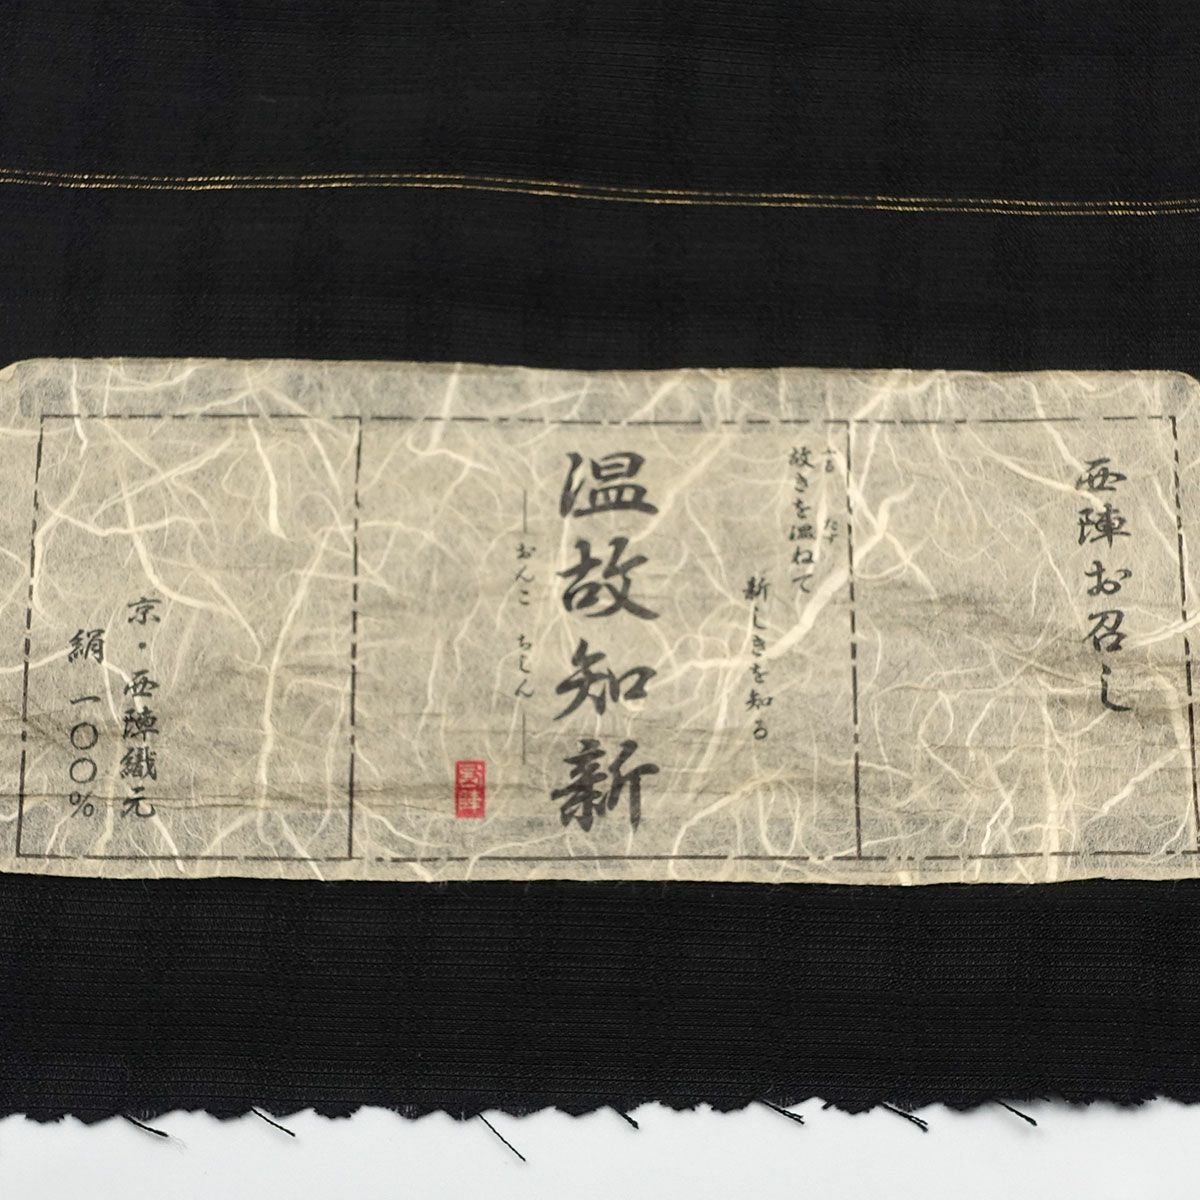 西陣お召し
故きを温ねて
ふる
たず
新しきを知る
温故知新
おんこ ちしん
京・西陣織元
絹 一〇〇%